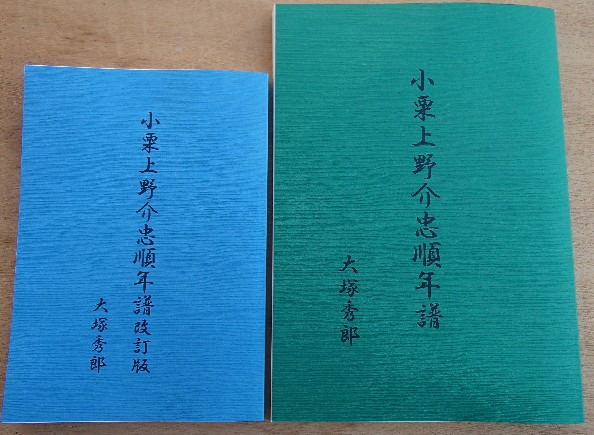 小栗上野介忠順年譜改訂版
大塚秀郎
小栗上野介忠順年譜
大塚秀郎